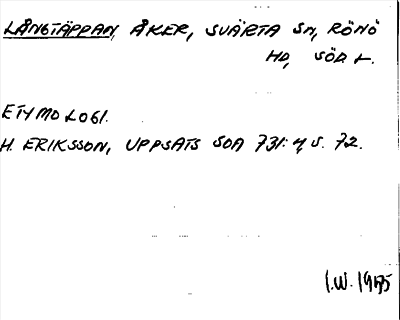 LÅNGTÄPPAN, ÅKER, SVÄRTA SN, RÖNÖ
HD, SÖD L.
ETYMOLOGI.
H. ERIKSSON, UPPSATS SOA 731:4, S. 72.
I.W. 1975